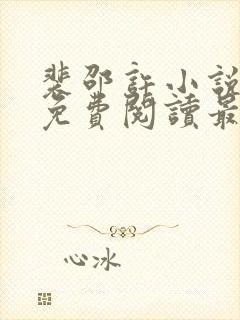 裴邵許小說
免費閱讀最
心冰